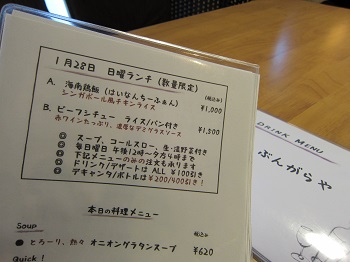 1月28日 日曜ランチ (数量限定)
A. 海南鶏飯 (はいなんちーふぁん) (税込み)
シンガポール風チキンライス ¥1,000
B. ビーフシチュー ライス/パン付き (税込み)
赤ワインたっぷり、濃厚なデミグラスソース ¥1,300
◎ スープ、コールスロー、生・浅野菜付き
◎ 毎日曜日 午後12時〜夕方4時まで
◎ 下記メニューのみの注文も承ります
◎ ドリンク/デザートは ALL ¥100引き
◎ デキャンタ/ボトルは ¥200/400引き!
本日の料理メニュー
Soup 税込み
● とろーり、熱々 オニオングラタンスープ ¥620
quick!
DRINK MENU
ぶんがらや